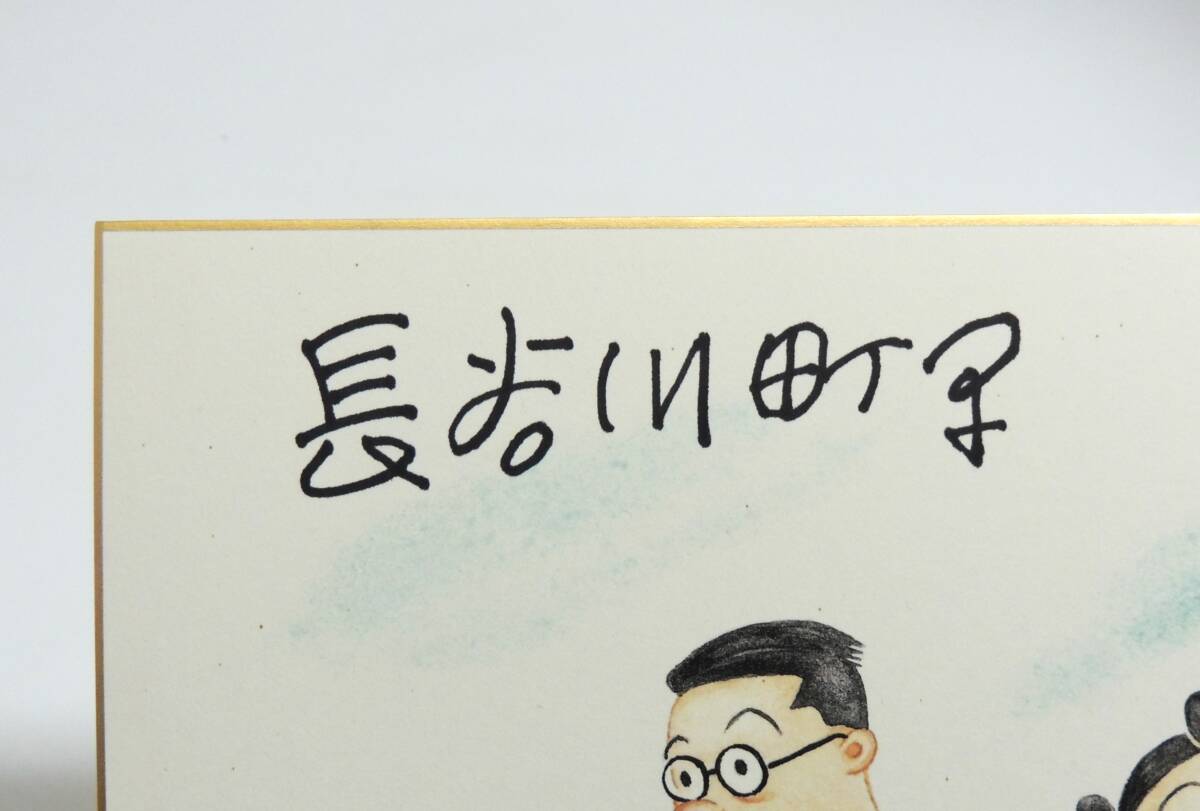 長谷川町子